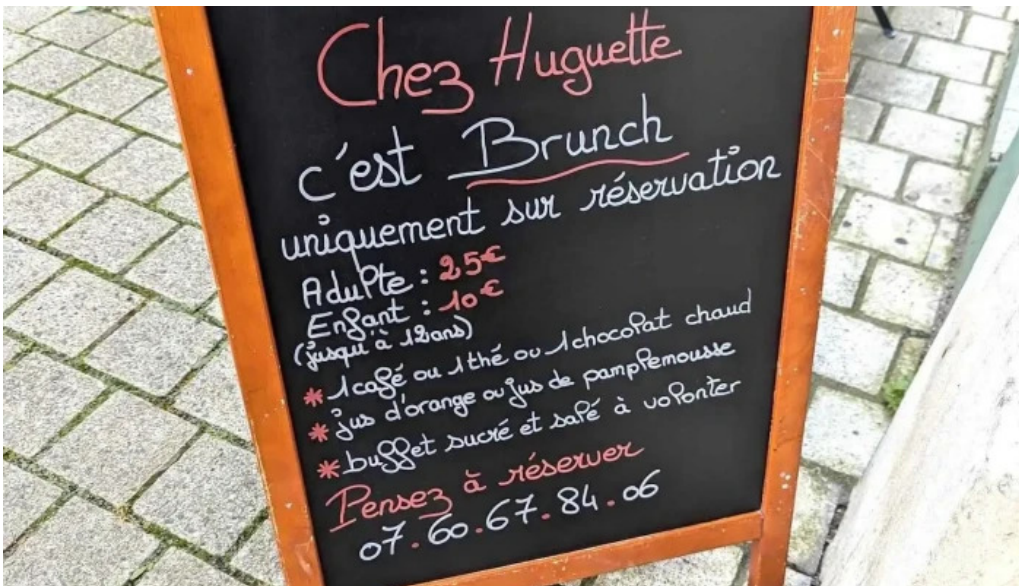 Chez Huguette
c'est Brunch
uniquement sur réservation
Adulte : 25€
Enfant : 10€
(jusqu'à 12ans)
* 1 café ou 1 thé ou 1 chocolat chaud
* jus d'orange ou jus de pamplemousse
* buffet sucré et salé à volonter
Pensez à réserver
07.60.67.84.06